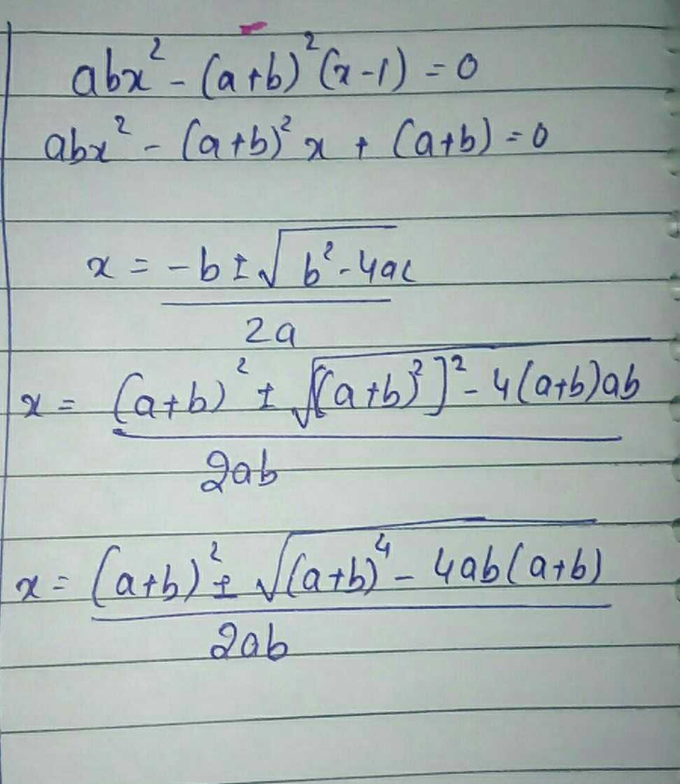 abx² - (a+b)²(x-1) = 0
abx² - (a+b)² x + (a+b) = 0
x = -b ± √(b² - 4ac)
2a
x = (a+b)² ± √[(a+b)²]² - 4(a+b)ab
2ab
x = (a+b)² ± √(a+b)⁴ - 4ab(a+b)
2ab